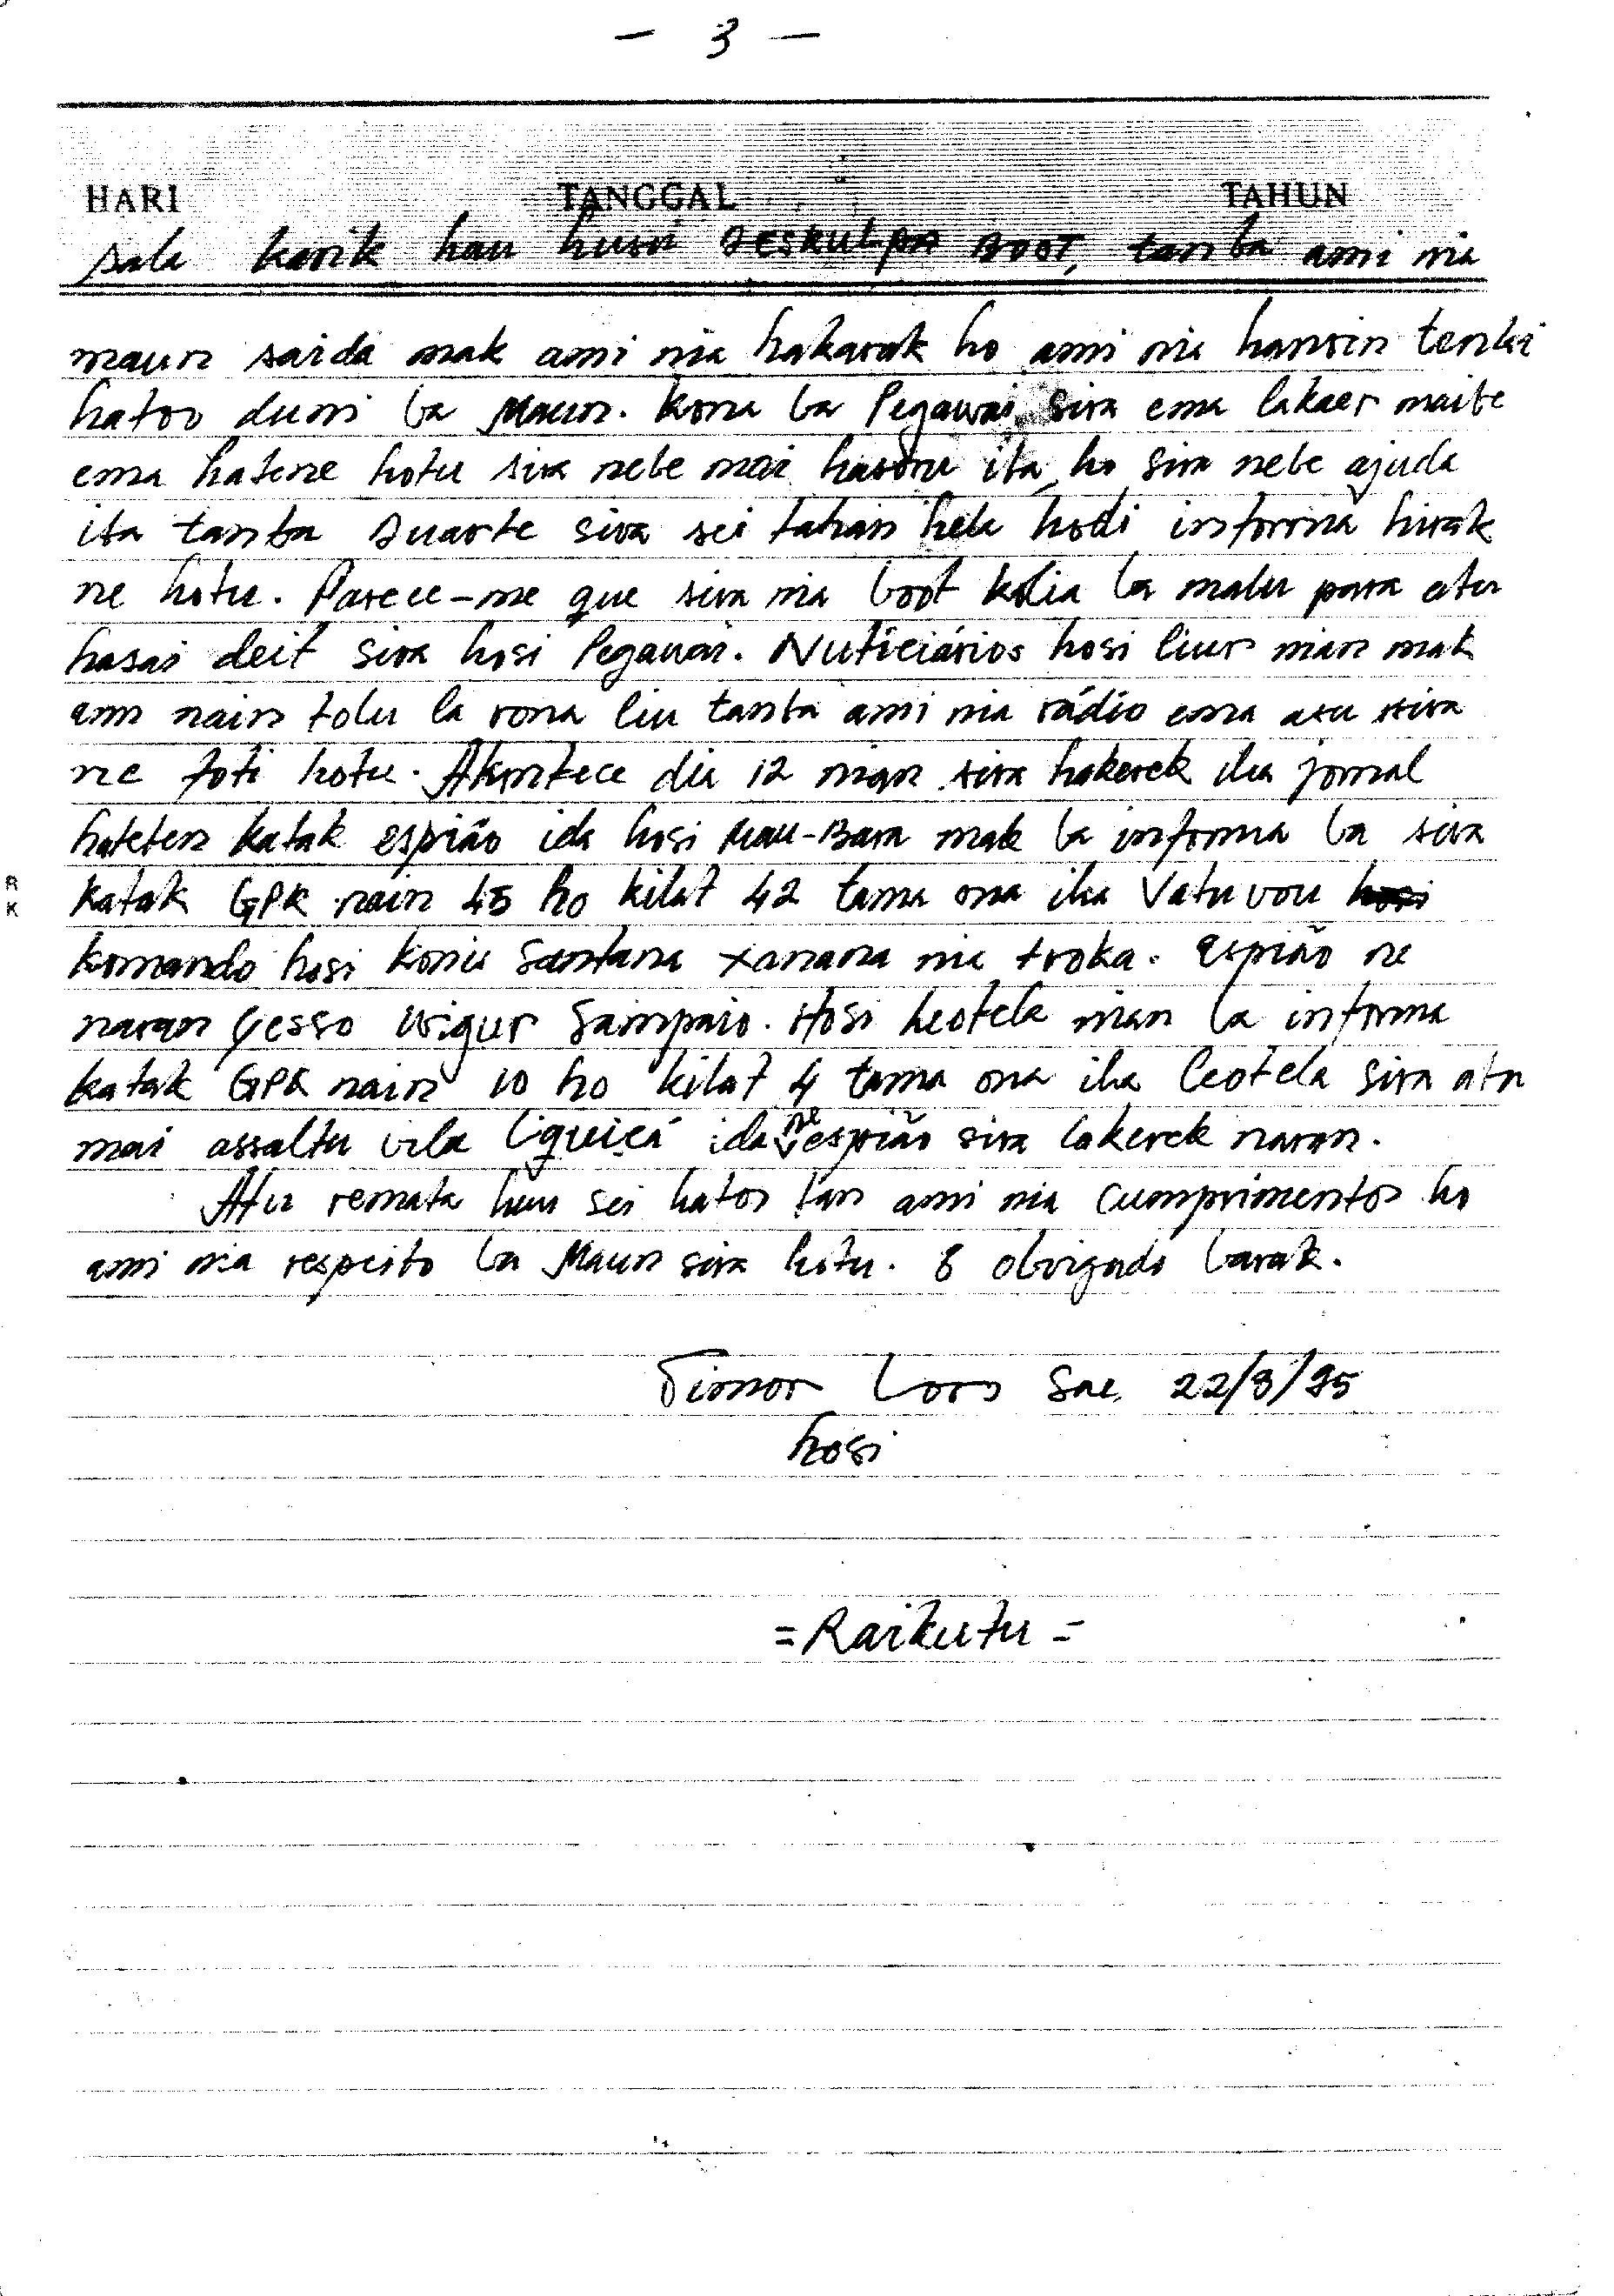 - 3 -
HARI TANGGAL TAHUN
sala karik hau husu deskulpa Boot, tanba ami nia
maun saida mak ami nia hakarak ho ami nia hanoin tenki
hatoo duni ba Maun. Kona ba Pegawai sira ema lakaer maibe
ema hatene hotu sira nebe mai hasoru ita, ho sira nebe ajuda
ita tanba Duarte sira sei tahan hela hodi informa hirak
ne hotu. Parece-me que sira nia boot kolia ba malu para atu
hasai deit sira hosi Pegawai. Nuticiários hosi liur nian mak
ami nain tolu la rona liu tanba ami nia rádio ema
ne foti hotu. Akontece dia 12 nian sira hakerek iha jornal
hateten katak espião ida hosi Mau-Bara mak ba informa ba sira
katak GPK nain 45 ho kilat 42 tama ona iha Vatuvou hosi
komando hosi Konis Santana Xanana nia troka. Espião ne
naran Gesso Vigur Sampaio. Hosi Leotela nian ba informa
katak GPK nain 10 ho kilat 4 tama ona iha Leotela sira atu
mai assaltu vila Liquiçá ida ne espião sira lakerek naran.
Atu remata hau sei hatoo tan ami nia cumprimentos ho
ami nia respeito ba Maun sira hotu. E obrigado barak.
Timor Loro Sae, 22/3/95
hosi
= Raikutu =
R
K